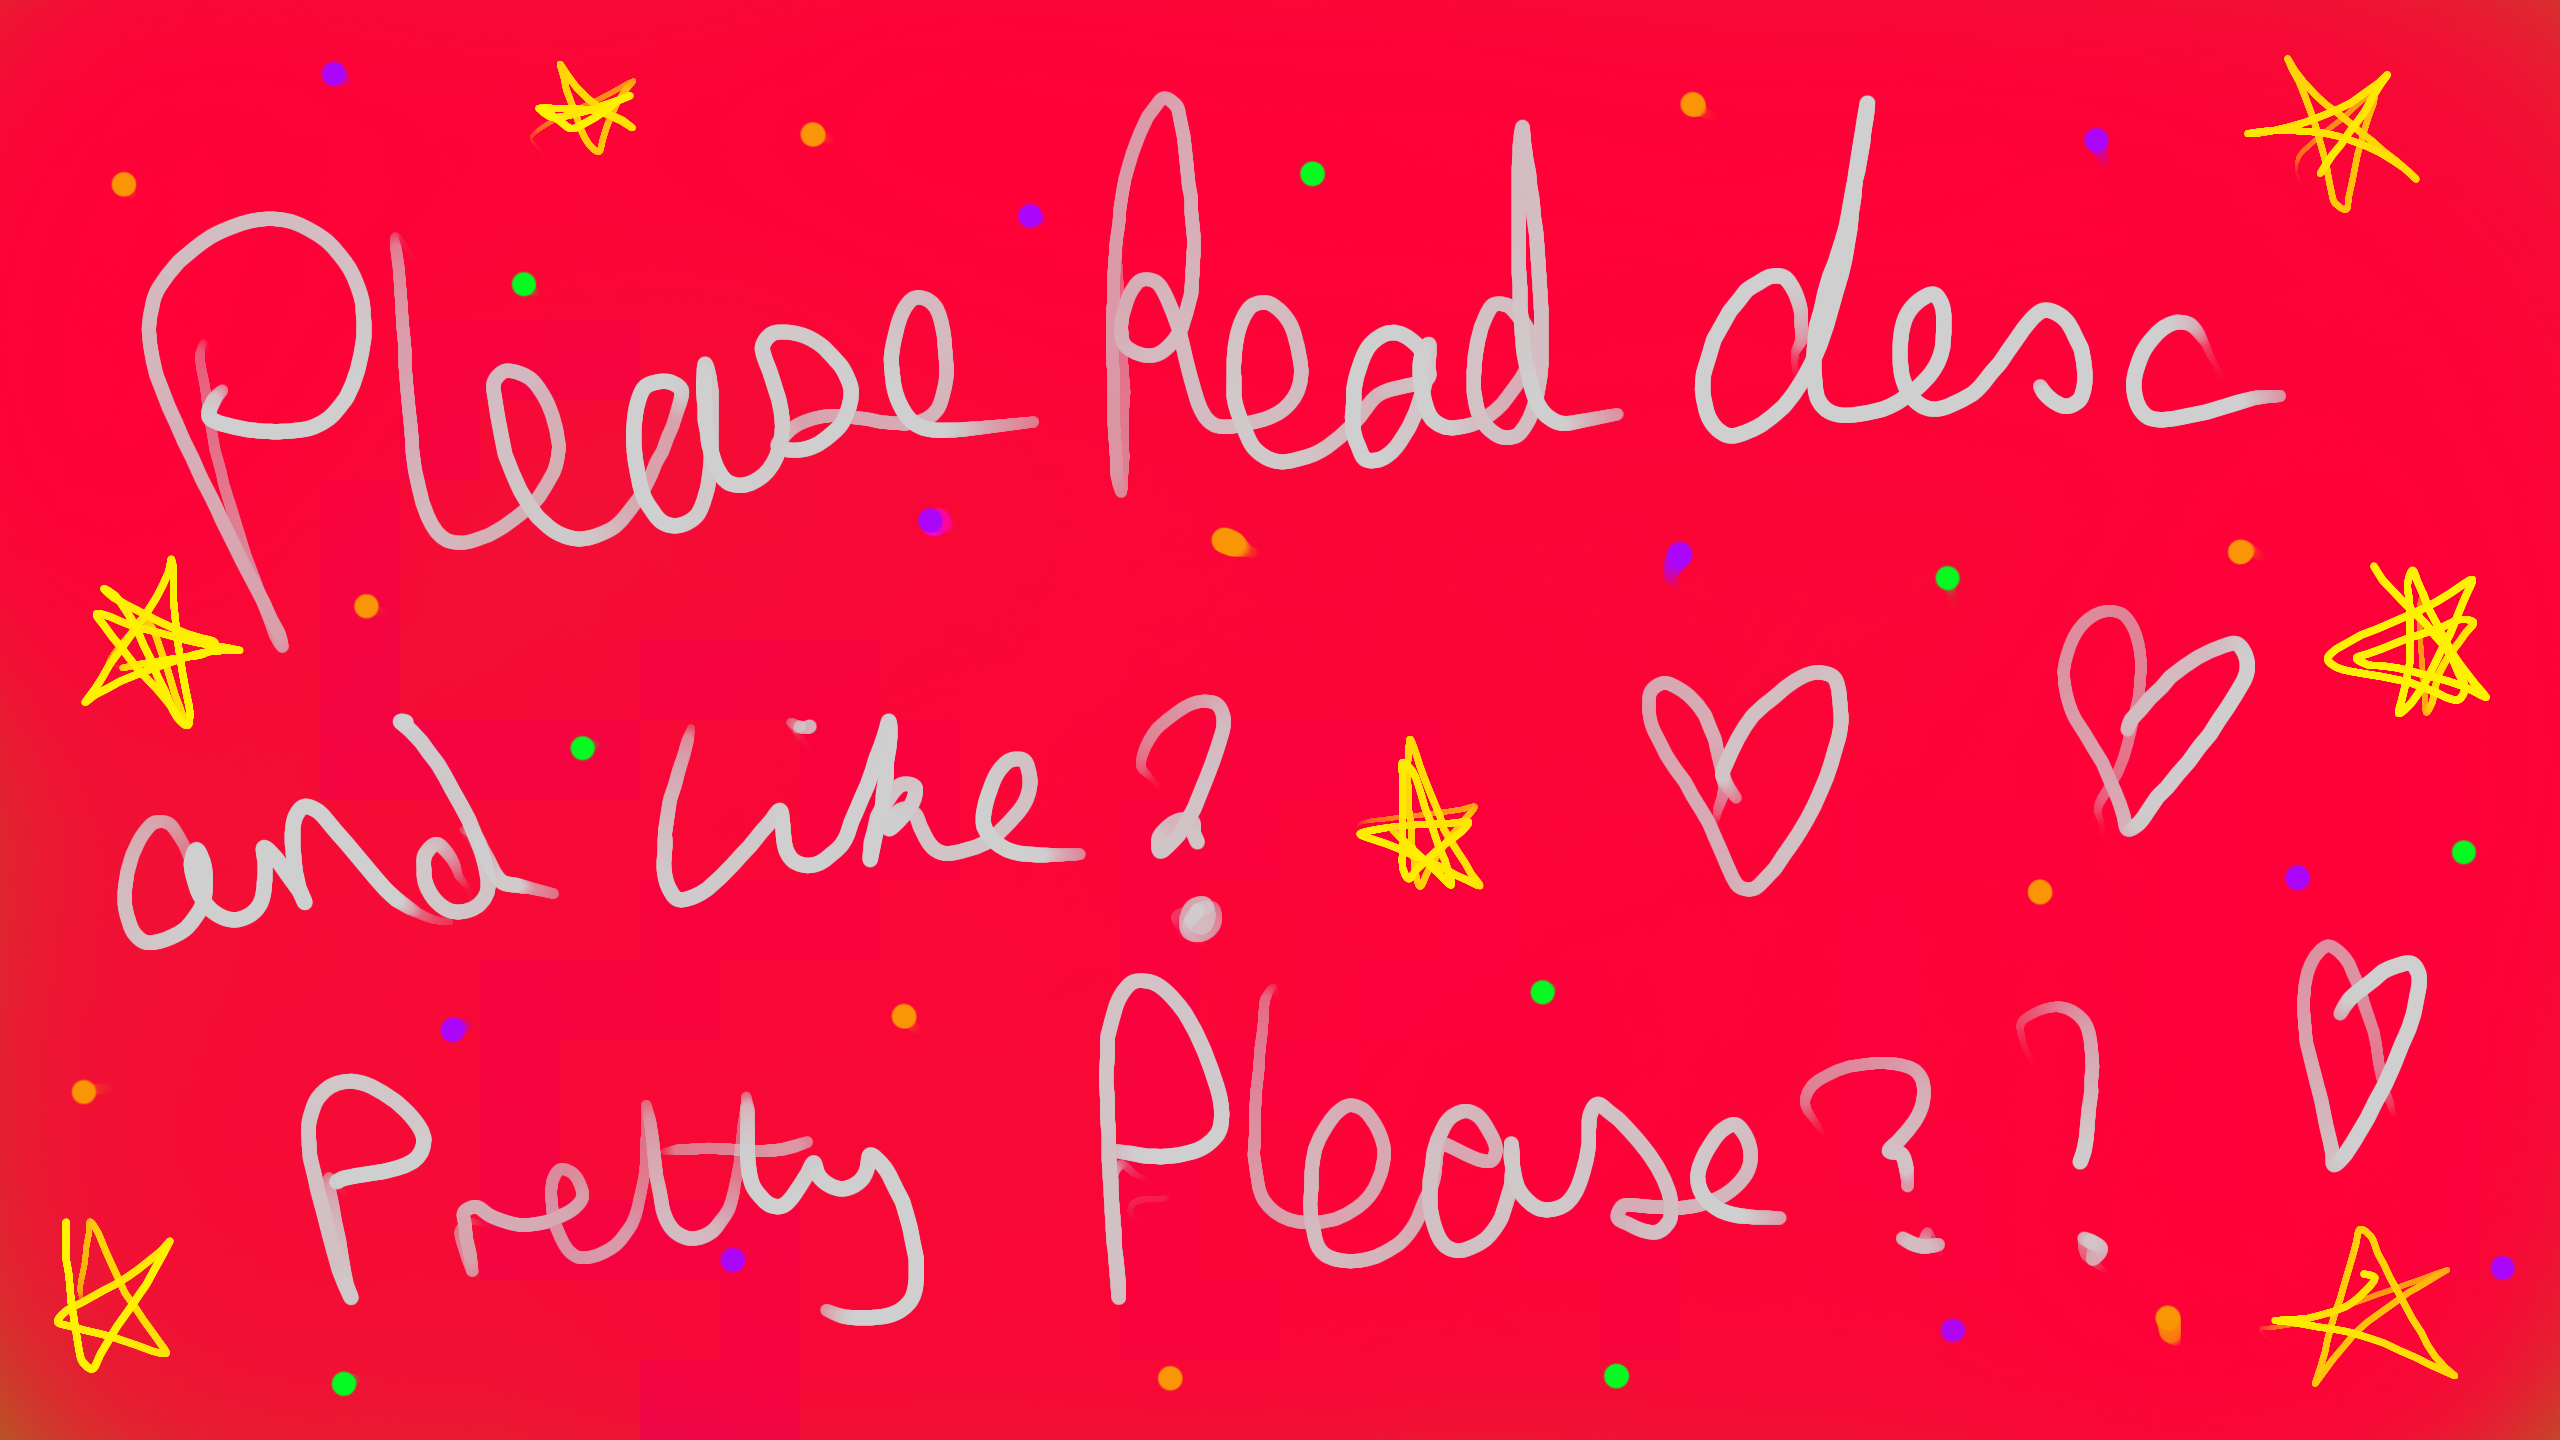 Please Read desc
and like?
Pretty Please??